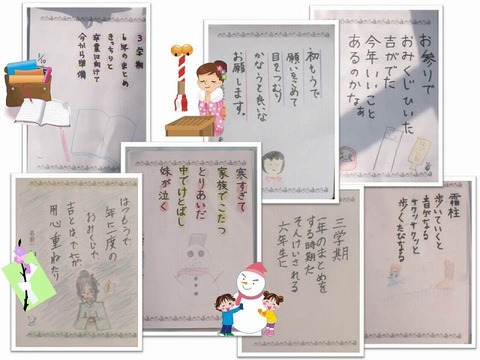 3学期
6年のまとめ
きっちりと
卒業に向けて
今から準備
初もうで
願いをこめて
目をつむり
かなうと良いな
お願します。
お参りで
おみくじひいた
吉がでた
今年いいこと
あるのかなぁ
はつもうで
年に一度の
おみくじで
吉とはでたが
用心重ねたり
寒すぎて
家族でこたつ
とりあいだ
中でけとばし
妹が泣く
三学期
一年のまとめを
する時期だ
そんけいされる
六年生に
霜柱
歩いていくと
音がなる
サクッサクッと
歩くたびなる